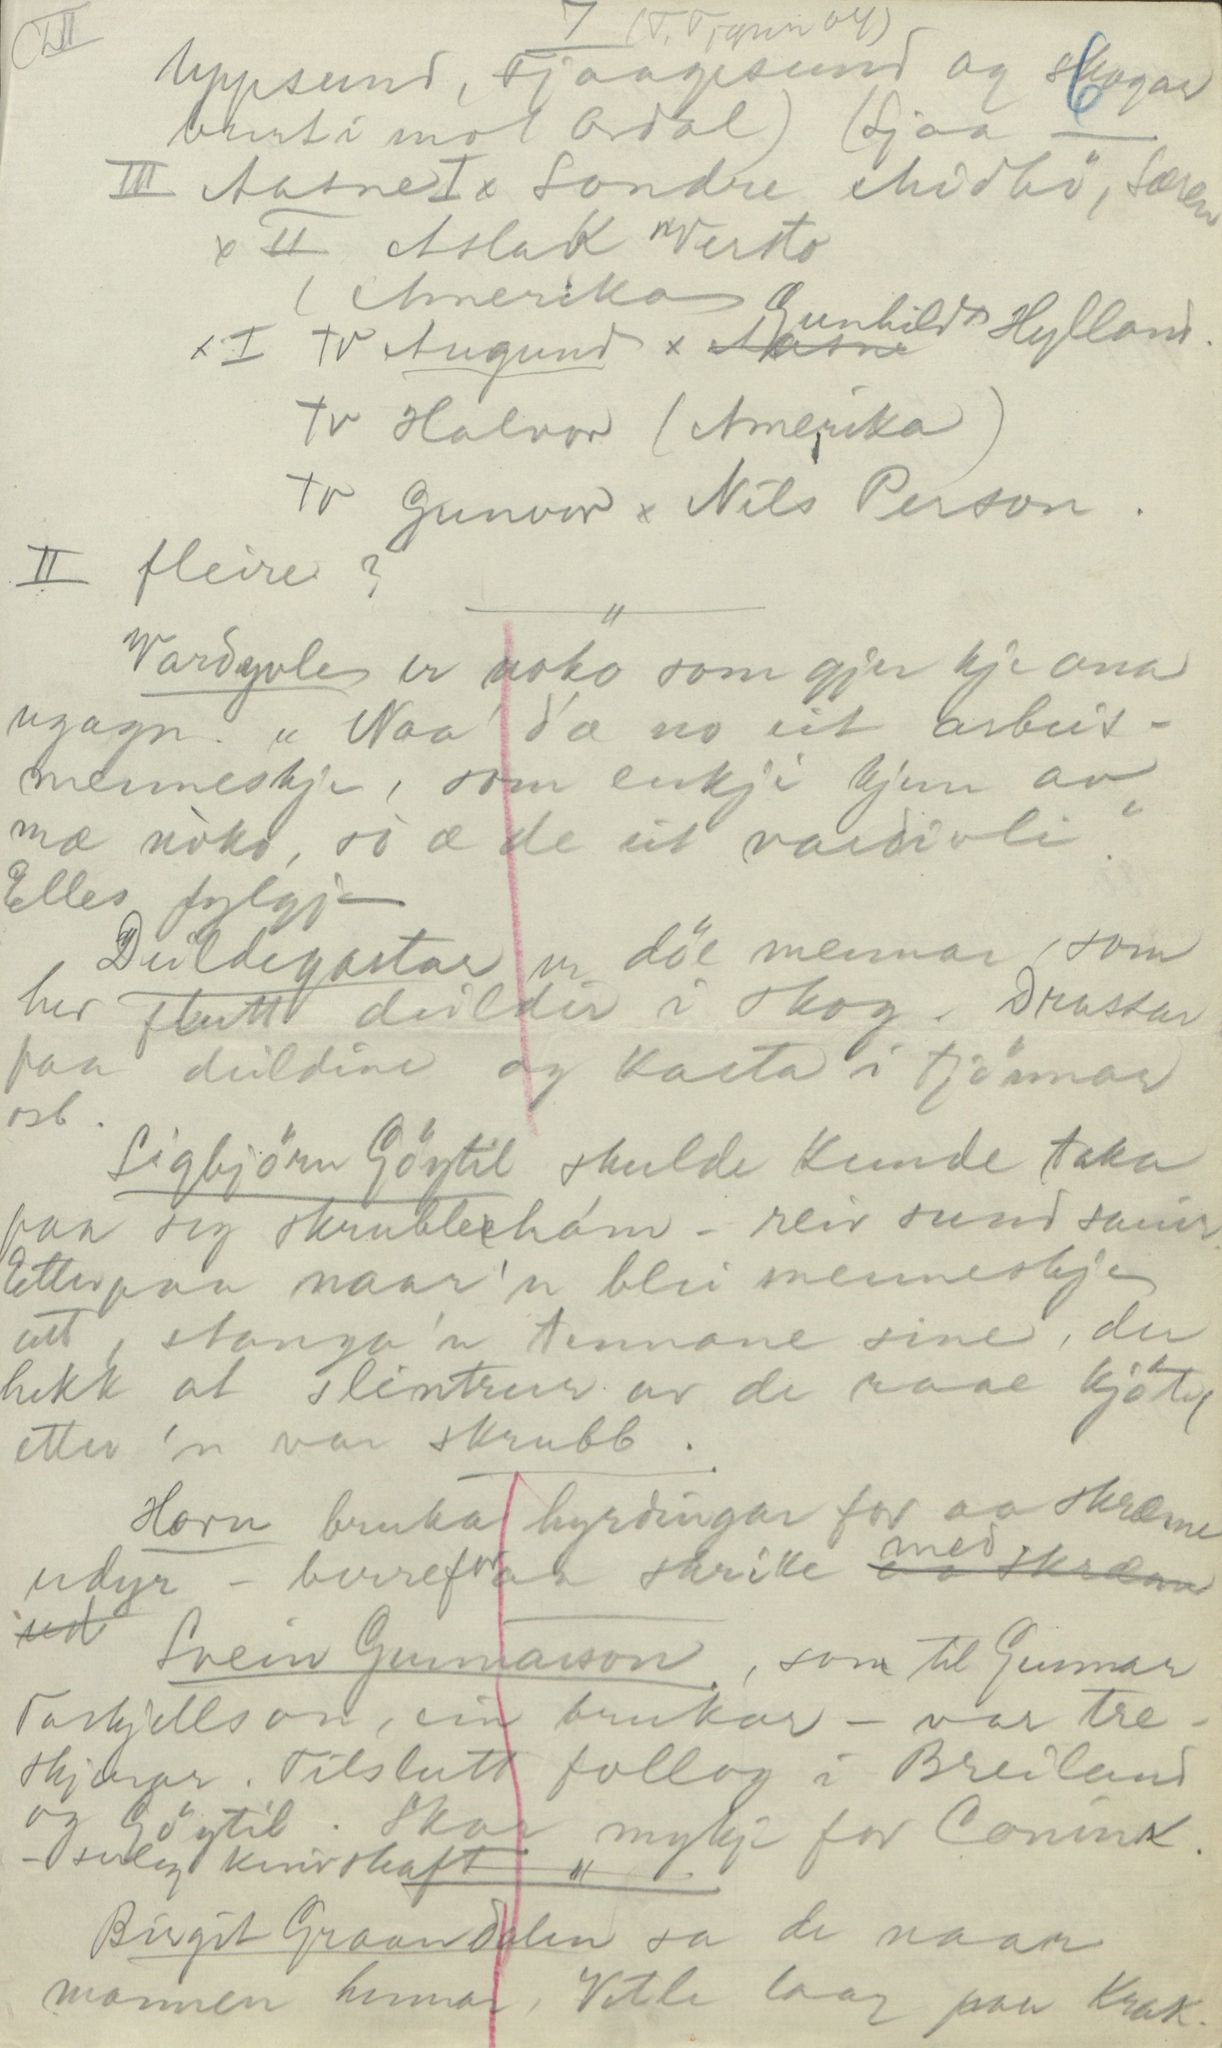 7
Uppsund, Tjaagesund og skogar
6
burt i mot Ordal) (Sjaa
III Aasne I x Sondre Midbö,
x II Aslak Versto
(Amerika
x I tv Augund x Gunhild Hylland.
tv Halvor (Amerika)
tv Gunvor x Nils Person.
II fleire?
"
Vardyvle er noko som gjer kje ana
ugagn. "Naa d'æ no eit arbeis-
menneskje, som enkji kjem av
mæ nòko, so æ de eit vardivli".
Elles fylgje
Deildegastar er döe mennar, som
her flutt deildir i skog. Drassar
paa deildine og kasta i tjönnar
osb.
Sigbjörn Göytil skulde kunde taka
paa seg skrubbehám - reiv sund sauir.
Etterpaa naar'n blei menneskje
att, stanga'n tennane sine, der
hekk at slintrur av de raae kjöte,
etter 'n var skrubb.
Horn bruka hyrdingar for aa skræme
udyr - berre for aa skrike med.
Svein Gunnarson, son til Gunnar
Torkjellson, ein brukar - var tre-
skjerar. Tilslutt follog i Breiland
og Göytil. Skar mykje for Conink.
- selig kundskaft "
Birgit Graavdalen sa de naar
mannen hennar, Vetle laag paa Krak.